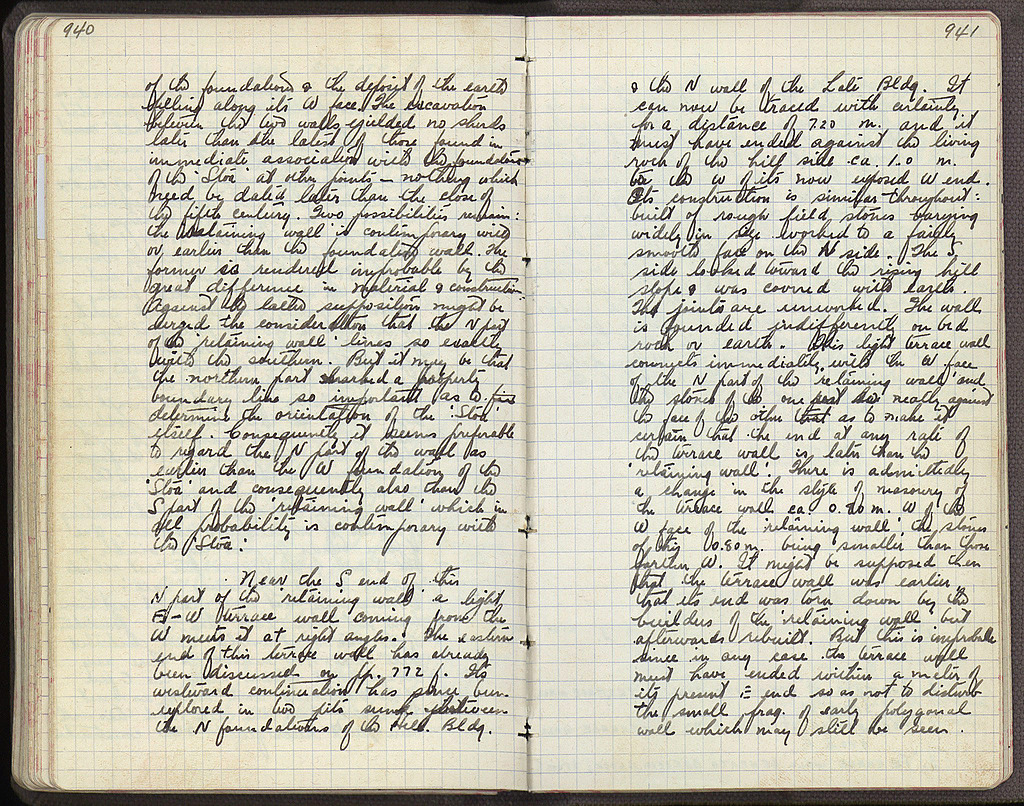 940
of the foundations & the deposit of the earth
filling along its W face. The excavation
between the two walls yielded no sherds
later than the latest of those found in
immediate association with the foundations
of the 'Stoa' at other points – nothing which
need be dated later than the close of
the fifth century. Two possibilities remain:
the 'retaining wall' is contemporary with
or earlier than the foundation wall. The
former is rendered improbable by the
great difference in material & construction.
Against the latter supposition might be
urged the consideration that the N part
of the 'retaining wall' lines so exactly
with the southern. But it may be that
the northern part marked a property
boundary line so important as to
determine the orientation of the 'Stoa'
itself. Consequently it seems preferable
to regard the N part of the wall as
earlier than the W foundation of the
'Stoa' and consequently also than the
S part of the 'retaining wall' which in
all probability is contemporary with
the 'Stoa'.
Near the S end of this
N part of the 'retaining wall' a light
E–W terrace wall coming from the
W meets it at right angles. The eastern
end of this terrace wall has already
been discussed on pp. 772 f. Its
westward continuation has since been
explored in two pits sunk between
the N foundations of the Hell. Bldg.
941
& the N wall of the Late Bldg. It
can now be traced with certainty
for a distance of 7.20 m. and it
must have ended against the living
rock of the hill side ca. 1.0 m.
to the W of its now exposed W end.
Its construction is similar throughout:
built of rough field stones varying
widely in size worked to a fairly
smooth face on the N side. The S
side looked toward the rising hill
slope & was covered with earth.
The joints are unworked. The wall
is founded indifferently on bed
rock or earth. This light terrace wall
connects immediately with the W face
of the N part of the 'retaining wall' and
the stones of the one neatly against
the face of the other as to make it
certain that the end at any rate of
the terrace wall is later than the
'retaining wall'. There is admittedly
a change in the style of masonry of
the terrace wall ca. 0.80 m. W of the
W face of the 'retaining wall', the stones
of this 0.80 m. being smaller than those
farther W. It might be supposed then
that the terrace wall was earlier,
that its end was torn down by the
builders of the 'retaining wall' but
afterwards rebuilt. But this is improbable
since in any case the terrace wall
must have ended within a meter of
its present E end so as not to disturb
the small frag. of early polygonal
wall which may still be seen.